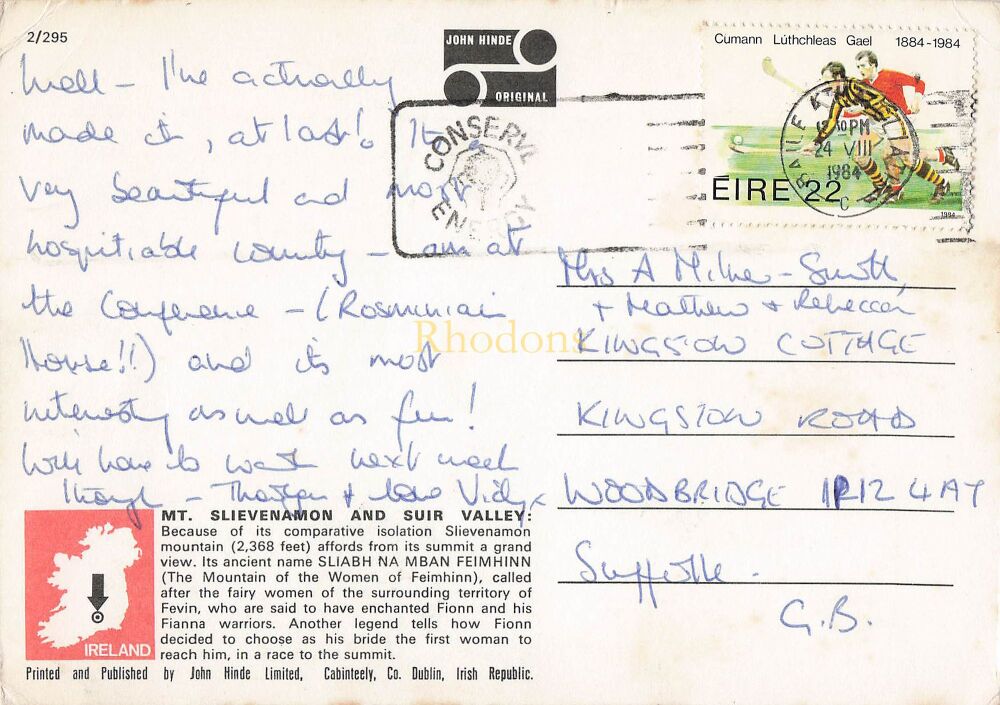 2/295
JOHN HINDE
ORIGINAL
Cumann Lúthchleas Gael 1884-1984
CONSERVE
ENERGY
BAILE
12 30 PM
24 VIII
1984
C
ÉIRE 22
1984
Well - I've actually
made it, at last! It
very beautiful and most
hospitiable country - am at
the Conference - (Rosminian
House!!) and its most
interesting as well as fun!
Will have to work next week
though - & love
Mrs A Milner-Smith,
+ Mathew + Rebecca
KINGSTON COTTAGE
KINGSTON ROAD
WOODBRIDGE IP12 4AY
Suffolk.
G.B.
Rhodons
MT. SLIEVENAMON AND SUIR VALLEY:
Because of its comparative isolation Slievenamon
mountain (2,368 feet) affords from its summit a grand
view. Its ancient name SLIABH NA MBAN FEIMHINN
(The Mountain of the Women of Feimhinn), called
after the fairy women of the surrounding territory of
Fevin, who are said to have enchanted Fionn and his
Fianna warriors. Another legend tells how Fionn
decided to choose as his bride the first woman to
reach him, in a race to the summit.
IRELAND
Printed and Published by John Hinde Limited, Cabinteely, Co. Dublin, Irish Republic.